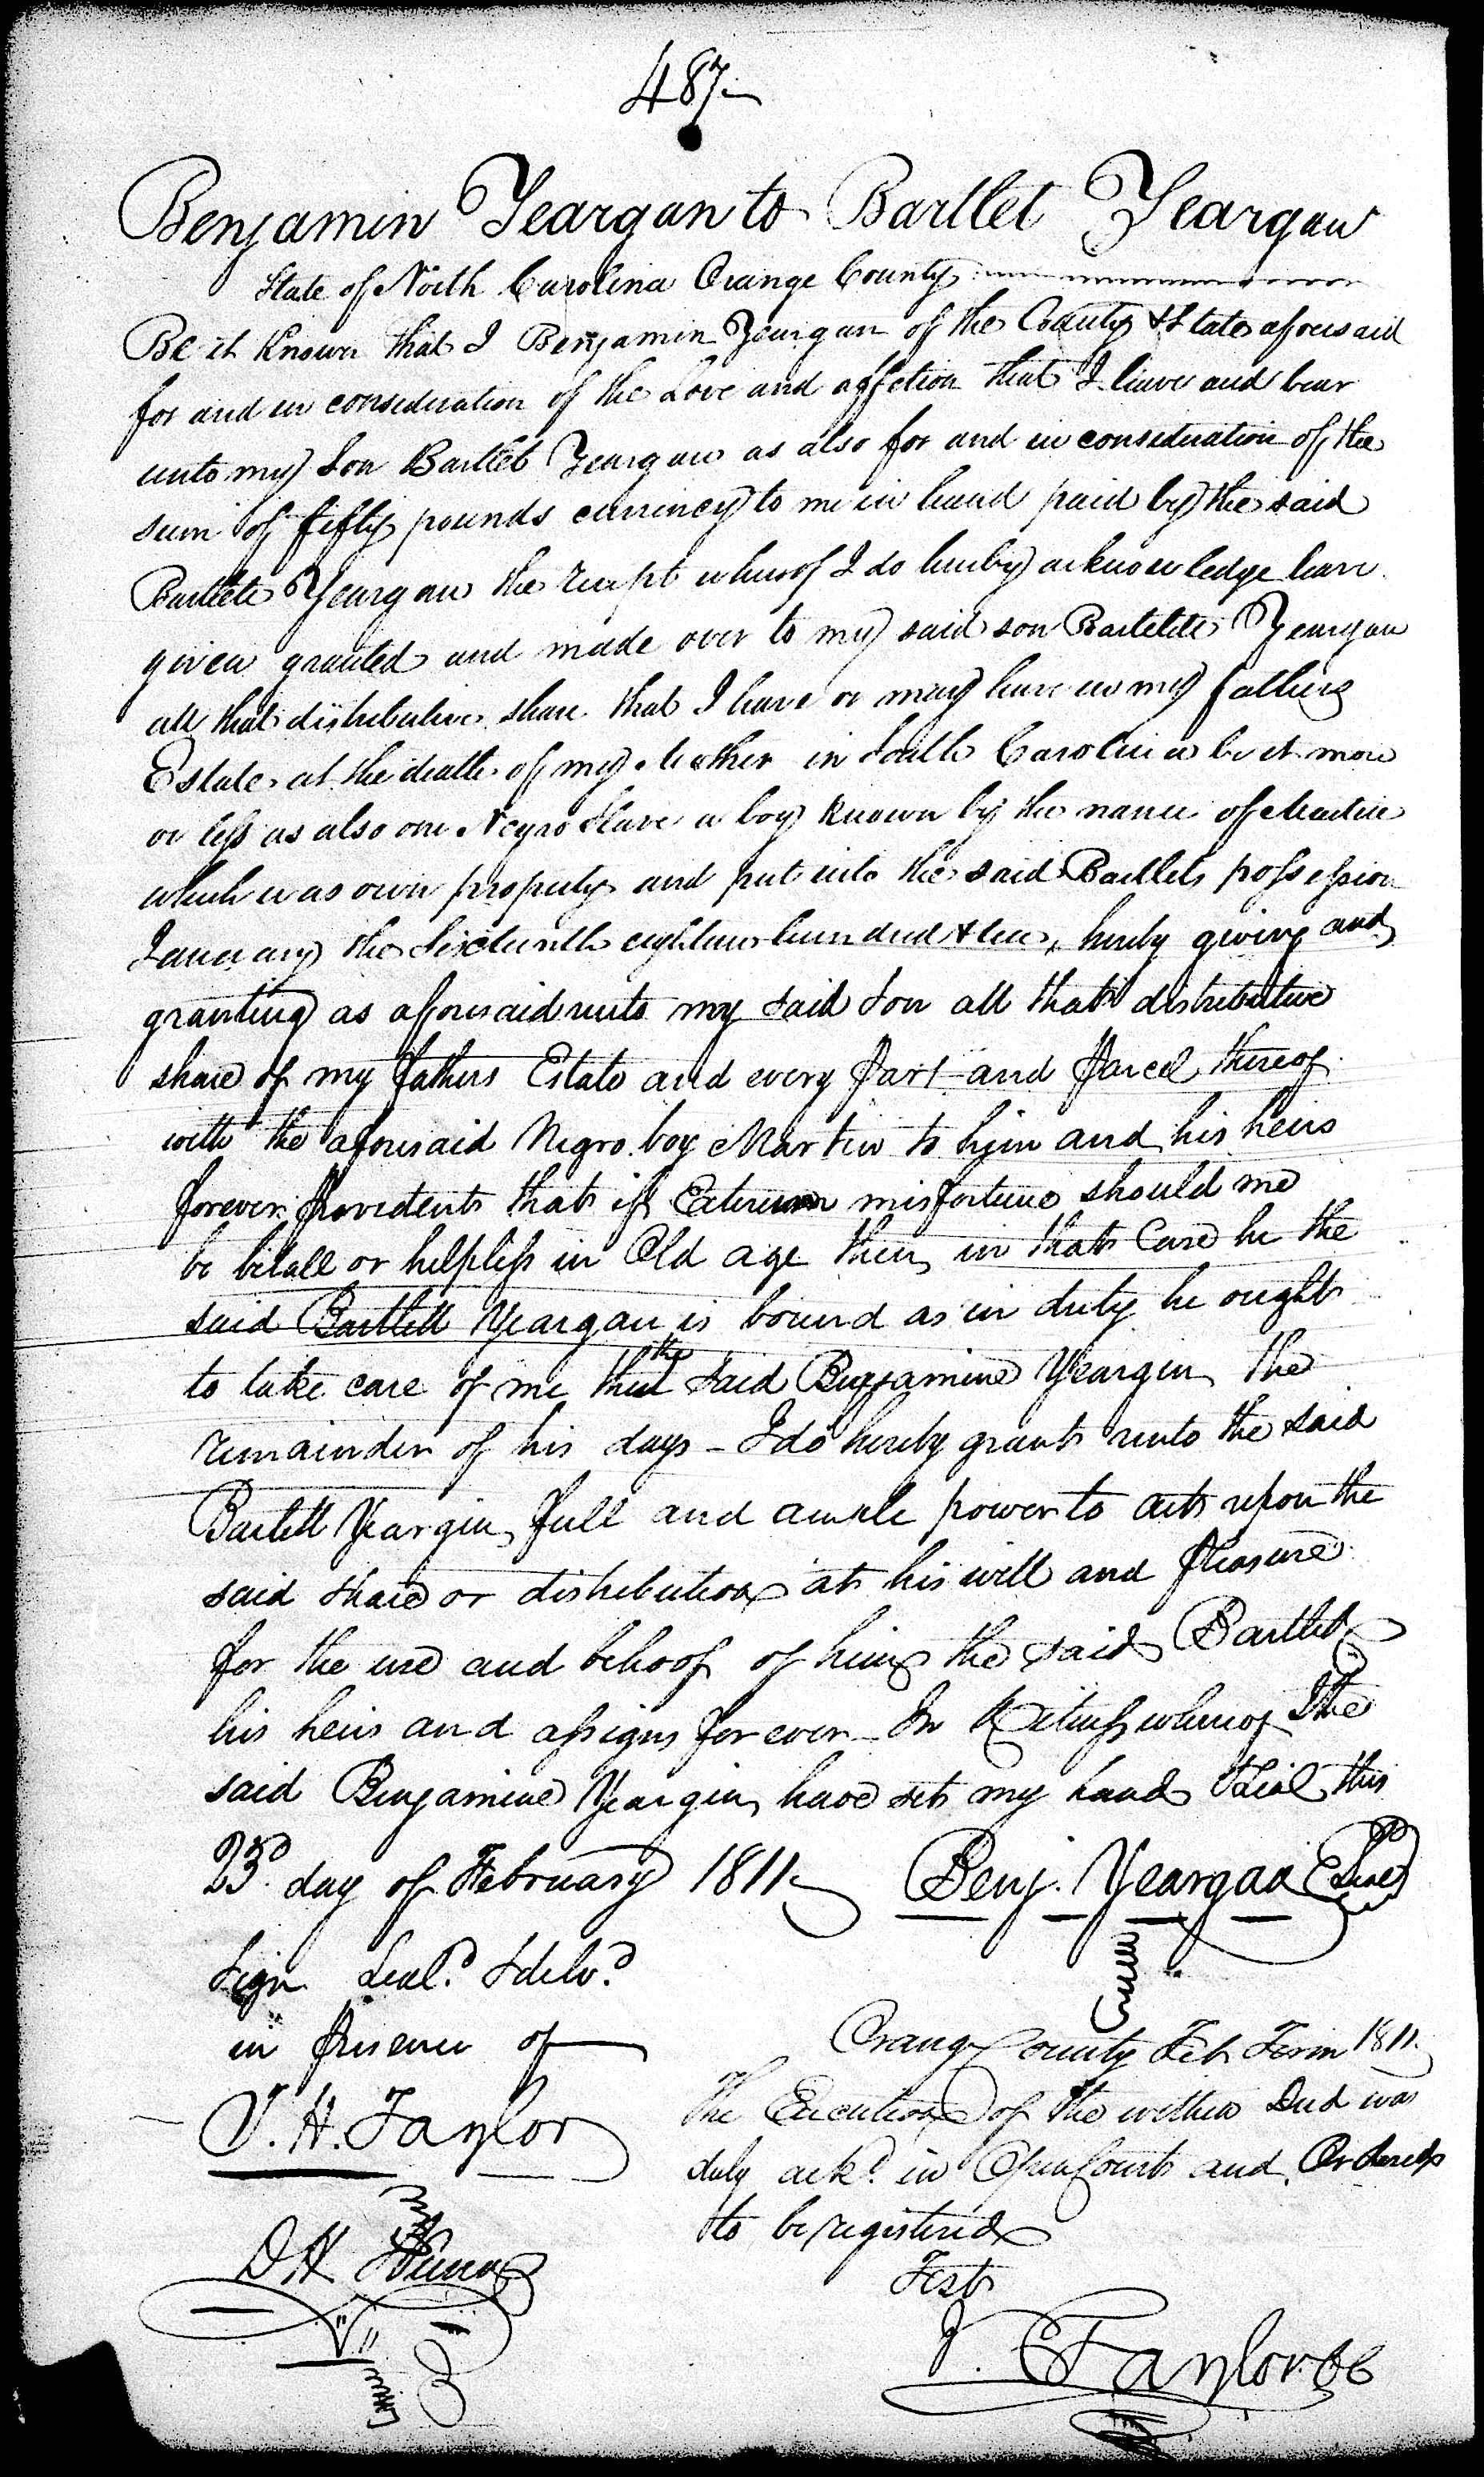 487
Benjamin Yeargan to Bartlet Yeargan
State of North Carolina Orange County
Be it Known that I Benjamin Yeargan of the County & State aforesaid
for and in consideration of the Love and affetion that I have and bear
unto my Son Bartlet Yeargan as also for and in consideration of the
sum of fifty pounds currency to me in hand paid by the said
Bartlete Yeargan the recept whereof I do hereby acknowledge have
given granted and made over to my said son Bartelete Yeargan
all that distributive share that I have or may have in my fathers
Estate at the death of my Mother in South Carolina be it more
or less as also one Negro Slave a boy known by the name of Martin
which was own property and put into the said Bartlets possession
January the Sixteenth eighteen hundred & ten, hereby giving and
granting as aforesaid unto my said Son all that distributive
share of my fathers Estate and every part and parcel thereof
with the aforesaid Negro boy Martin to him and his heirs
forever. that if misfortune should me
be befall or helpless in Old age then in that Case he the
said Bartlett Yeargan is bound as in duty he ought
to take care of me the said Benjamine Yeargin the
remainder of his days - I do hereby grant unto the said
Bartlett Yeargin full and ample power to act upon the
said share or distribution at his will and pleasure
for the use and behoof of him the said Bartlet
his heirs and assigns for ever In Witness whereof I the
said Benjamine Yeargin have set my hand & Seal this
23d. day of February 1811 Benj. Yeargan (Seal)
Sign Seal.d & delv.d
in presence of
J. H. Taylor
D. H.
Orange County Feb Term 1811.
The Execution of the within Deed was
duly ack.d in Open Court and Ordered
to be registered
Test
J. Taylor CC